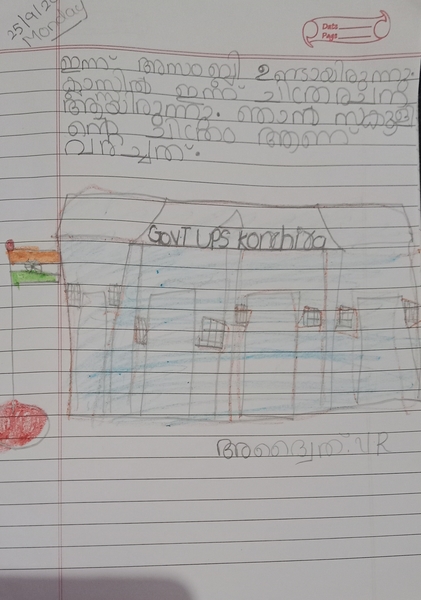 25/9/2
Monday
Date
Page
ഇന്ന് അസംബ്ലി ഉണ്ടായിരുന്നു.
ക്ലാസിൽ ഇന്ന് ചിത്രരചന
ആയിരുന്നു. ഞാൻ സ്കൂളി
ന്റെ ചിത്രം ആണ്
വരച്ചത്.
GOVT UPS Konchira
അദ്വൈത്. V R